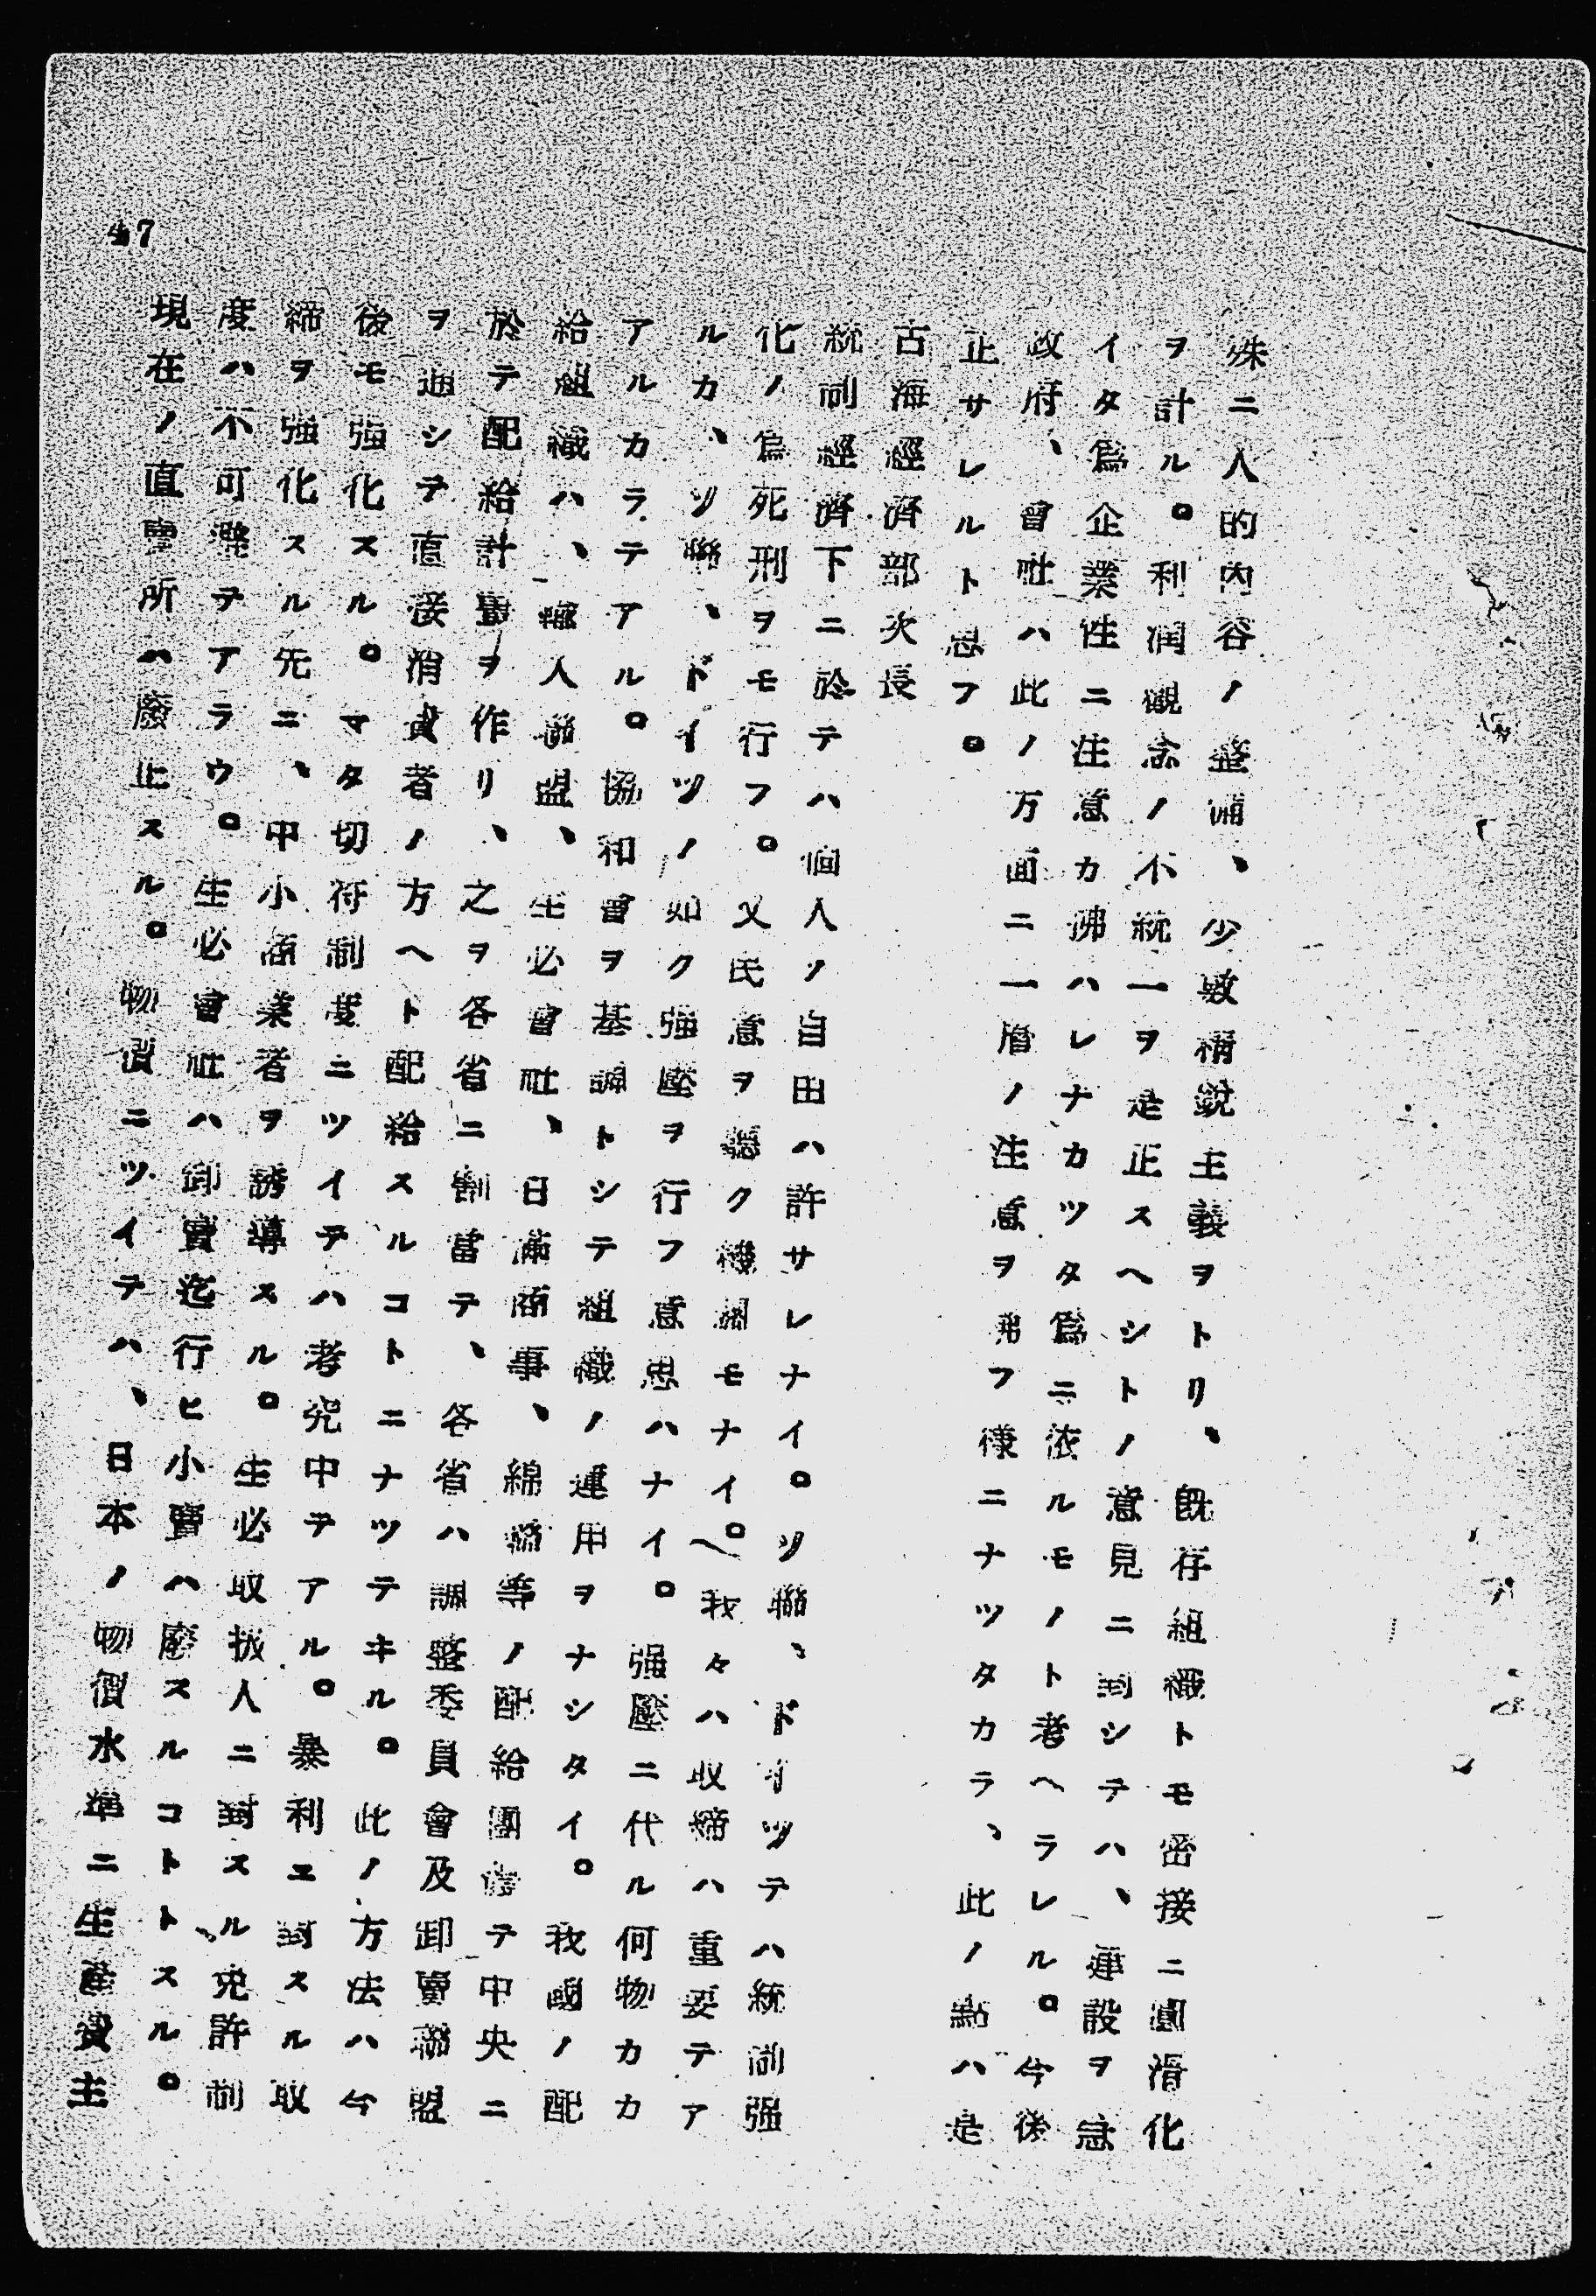 殊ニ人的內容ノ整備、少數精銳主義ヲトリ、既存組織トモ密接ニ圓滑化
ヲ計ル。利潤觀念ノ不統一ヲ是正スヘシトノ意見ニ對シテハ、運設ヲ急
イタ爲企業性ニ注意カ拂ハレナカツタ爲ニ依ルモノト考ヘラレル。今後
政府、會社ハ此ノ方面ニ一層ノ注意ヲ拂フ樣ニナツタカラ、此ノ點ハ是
正サレルト思フ。
古海經濟部次長
統制經濟下ニ於テハ個人ノ自由ハ許サレナイ。ソ聯、ドイツテハ統制强
化ノ爲死刑ヲモ行フ。又民意ヲ聽ク機關モナイ。我々ハ取締ハ重要テア
ルカ、ソ聯、ドイツノ如ク强壓ヲ行フ意思ハナイ。强壓ニ代ル何物カカ
アルカラテアル。協和會ヲ基調トシテ組織ノ運用ヲナシタイ。我國ノ配
給組織ハ、糧人聯盟、生必會社、日滿商事、綿聯等ノ配給團體テ中央ニ
於テ配給計畫ヲ作リ、之ヲ各省ニ割當テ、各省ハ調整委員會及卸賣聯盟
ヲ通シテ直接消費者ノ方ヘト配給スルコトニナツテヰル。此ノ方法ハ今
後モ强化スル。マタ切符制度ニツイテハ考究中テアル。暴利ニ對スル取
締ヲ强化スル先ニ、中小商業者ヲ誘導スル。生必取扱人ニ對スル免許制
度ハ不可避テアラウ。生必會社ハ卸賣迄行ヒ小賣ハ廢スルコトトスル。
現在ノ直賣所ハ廢止スル。物價ニツイテハ、日本ノ物價水準ニ生產費主
47